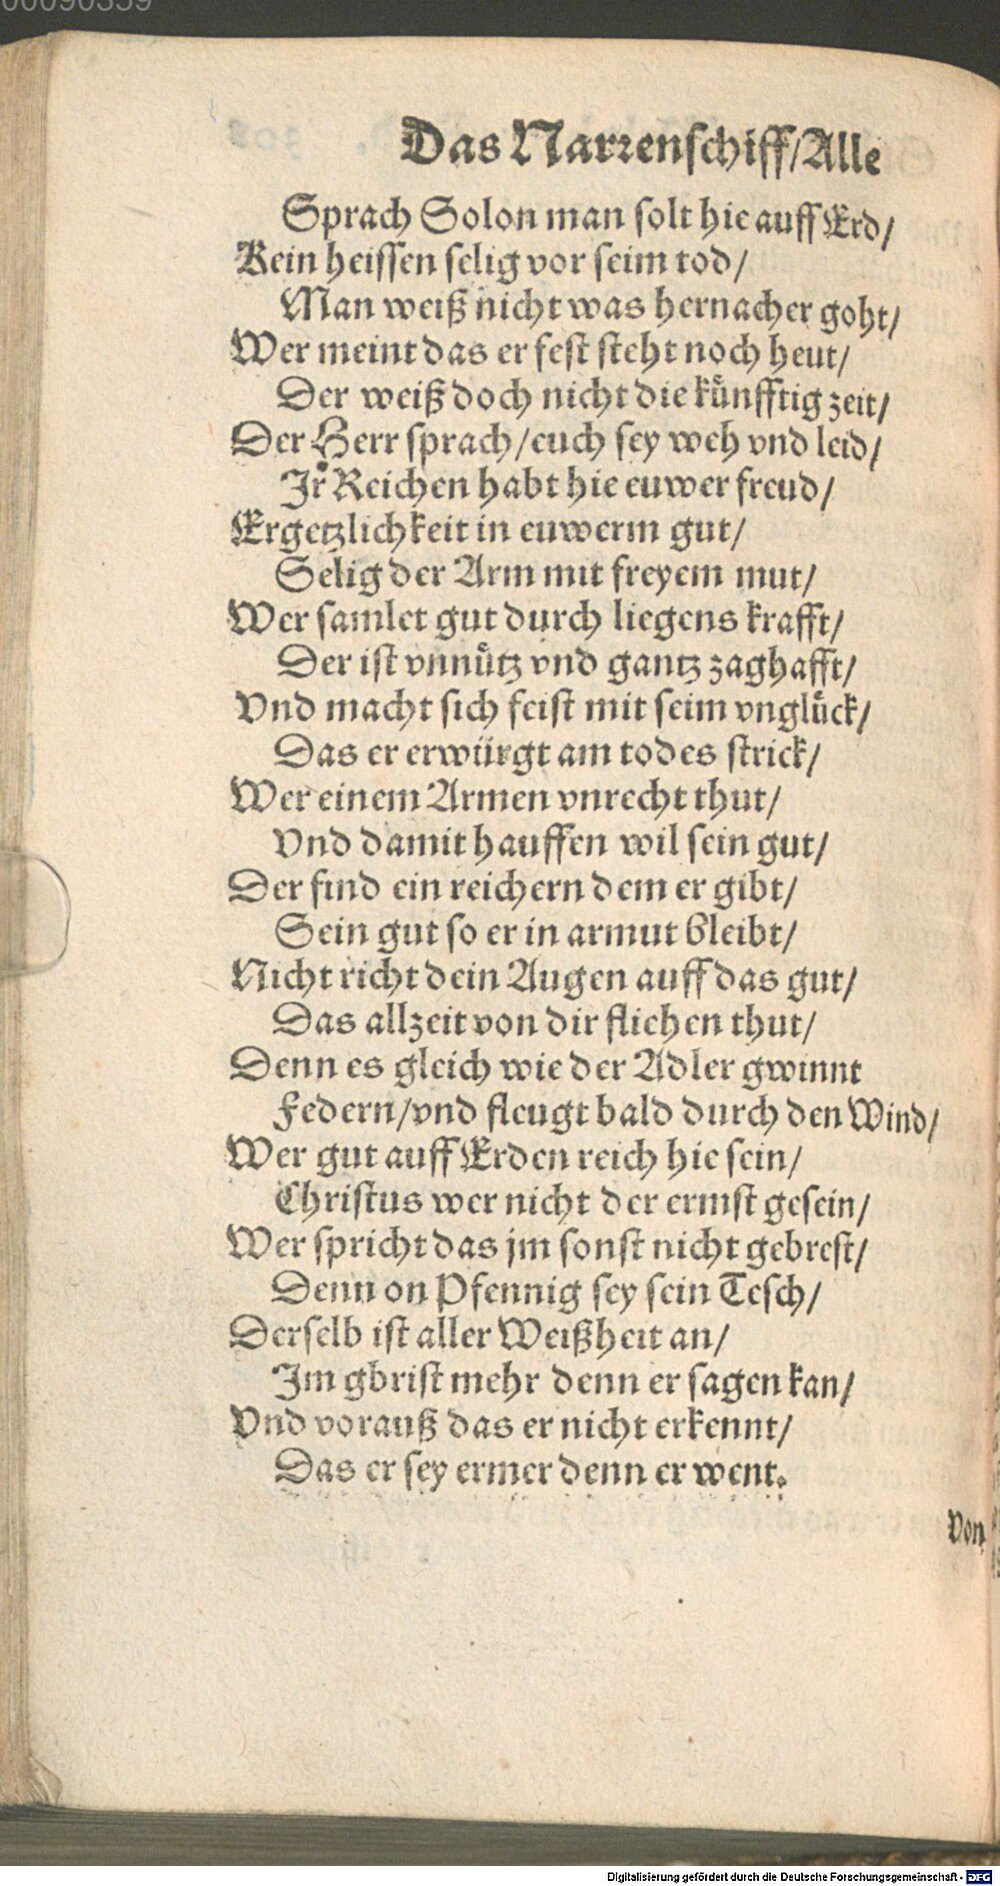 00090359
Das Narrenschiff/Alle
Sprach Solon man solt hie auff Erd/
Kein heissen selig vor seim tod/
Man weiß nicht was hernacher goht/
Wer meint das er fest steht noch heut/
Der weiß doch nicht die künfftig zeit/
Der Herr sprach/euch sey weh vnd leid/
Ir Reichen habt hie euwer freud/
Ergetzlichkeit in euwerm gut/
Selig der Arm mit freyem mut/
Wer samlet gut durch liegens krafft/
Der ist vnnütz vnd gantz zaghafft/
Vnd macht sich feist mit seim vnglück/
Das er erwürgt am todes strick/
Wer einem Armen vnrecht thut/
Vnd damit hauffen wil sein gut/
Der find ein reichern dem er gibt/
Sein gut so er in armut bleibt/
Nicht richt dein Augen auff das gut/
Das allzeit von dir fliehen thut/
Denn es gleich wie der Adler gwinnt
Federn/vnd fleugt bald durch den Wind/
Wer gut auff Erden reich hie sein/
Christus wer nicht der ermst gesein/
Wer spricht das jm sonst nicht gebrest/
Denn on Pfennig sey sein Tesch/
Derselb ist aller Weißheit an/
Im gbrist mehr denn er sagen kan/
Vnd vorauß das er nicht erkennt/
Das er sey ermer denn er went.
Von
Digitalisierung gefördert durch die Deutsche Forschungsgemeinschaft - DFG